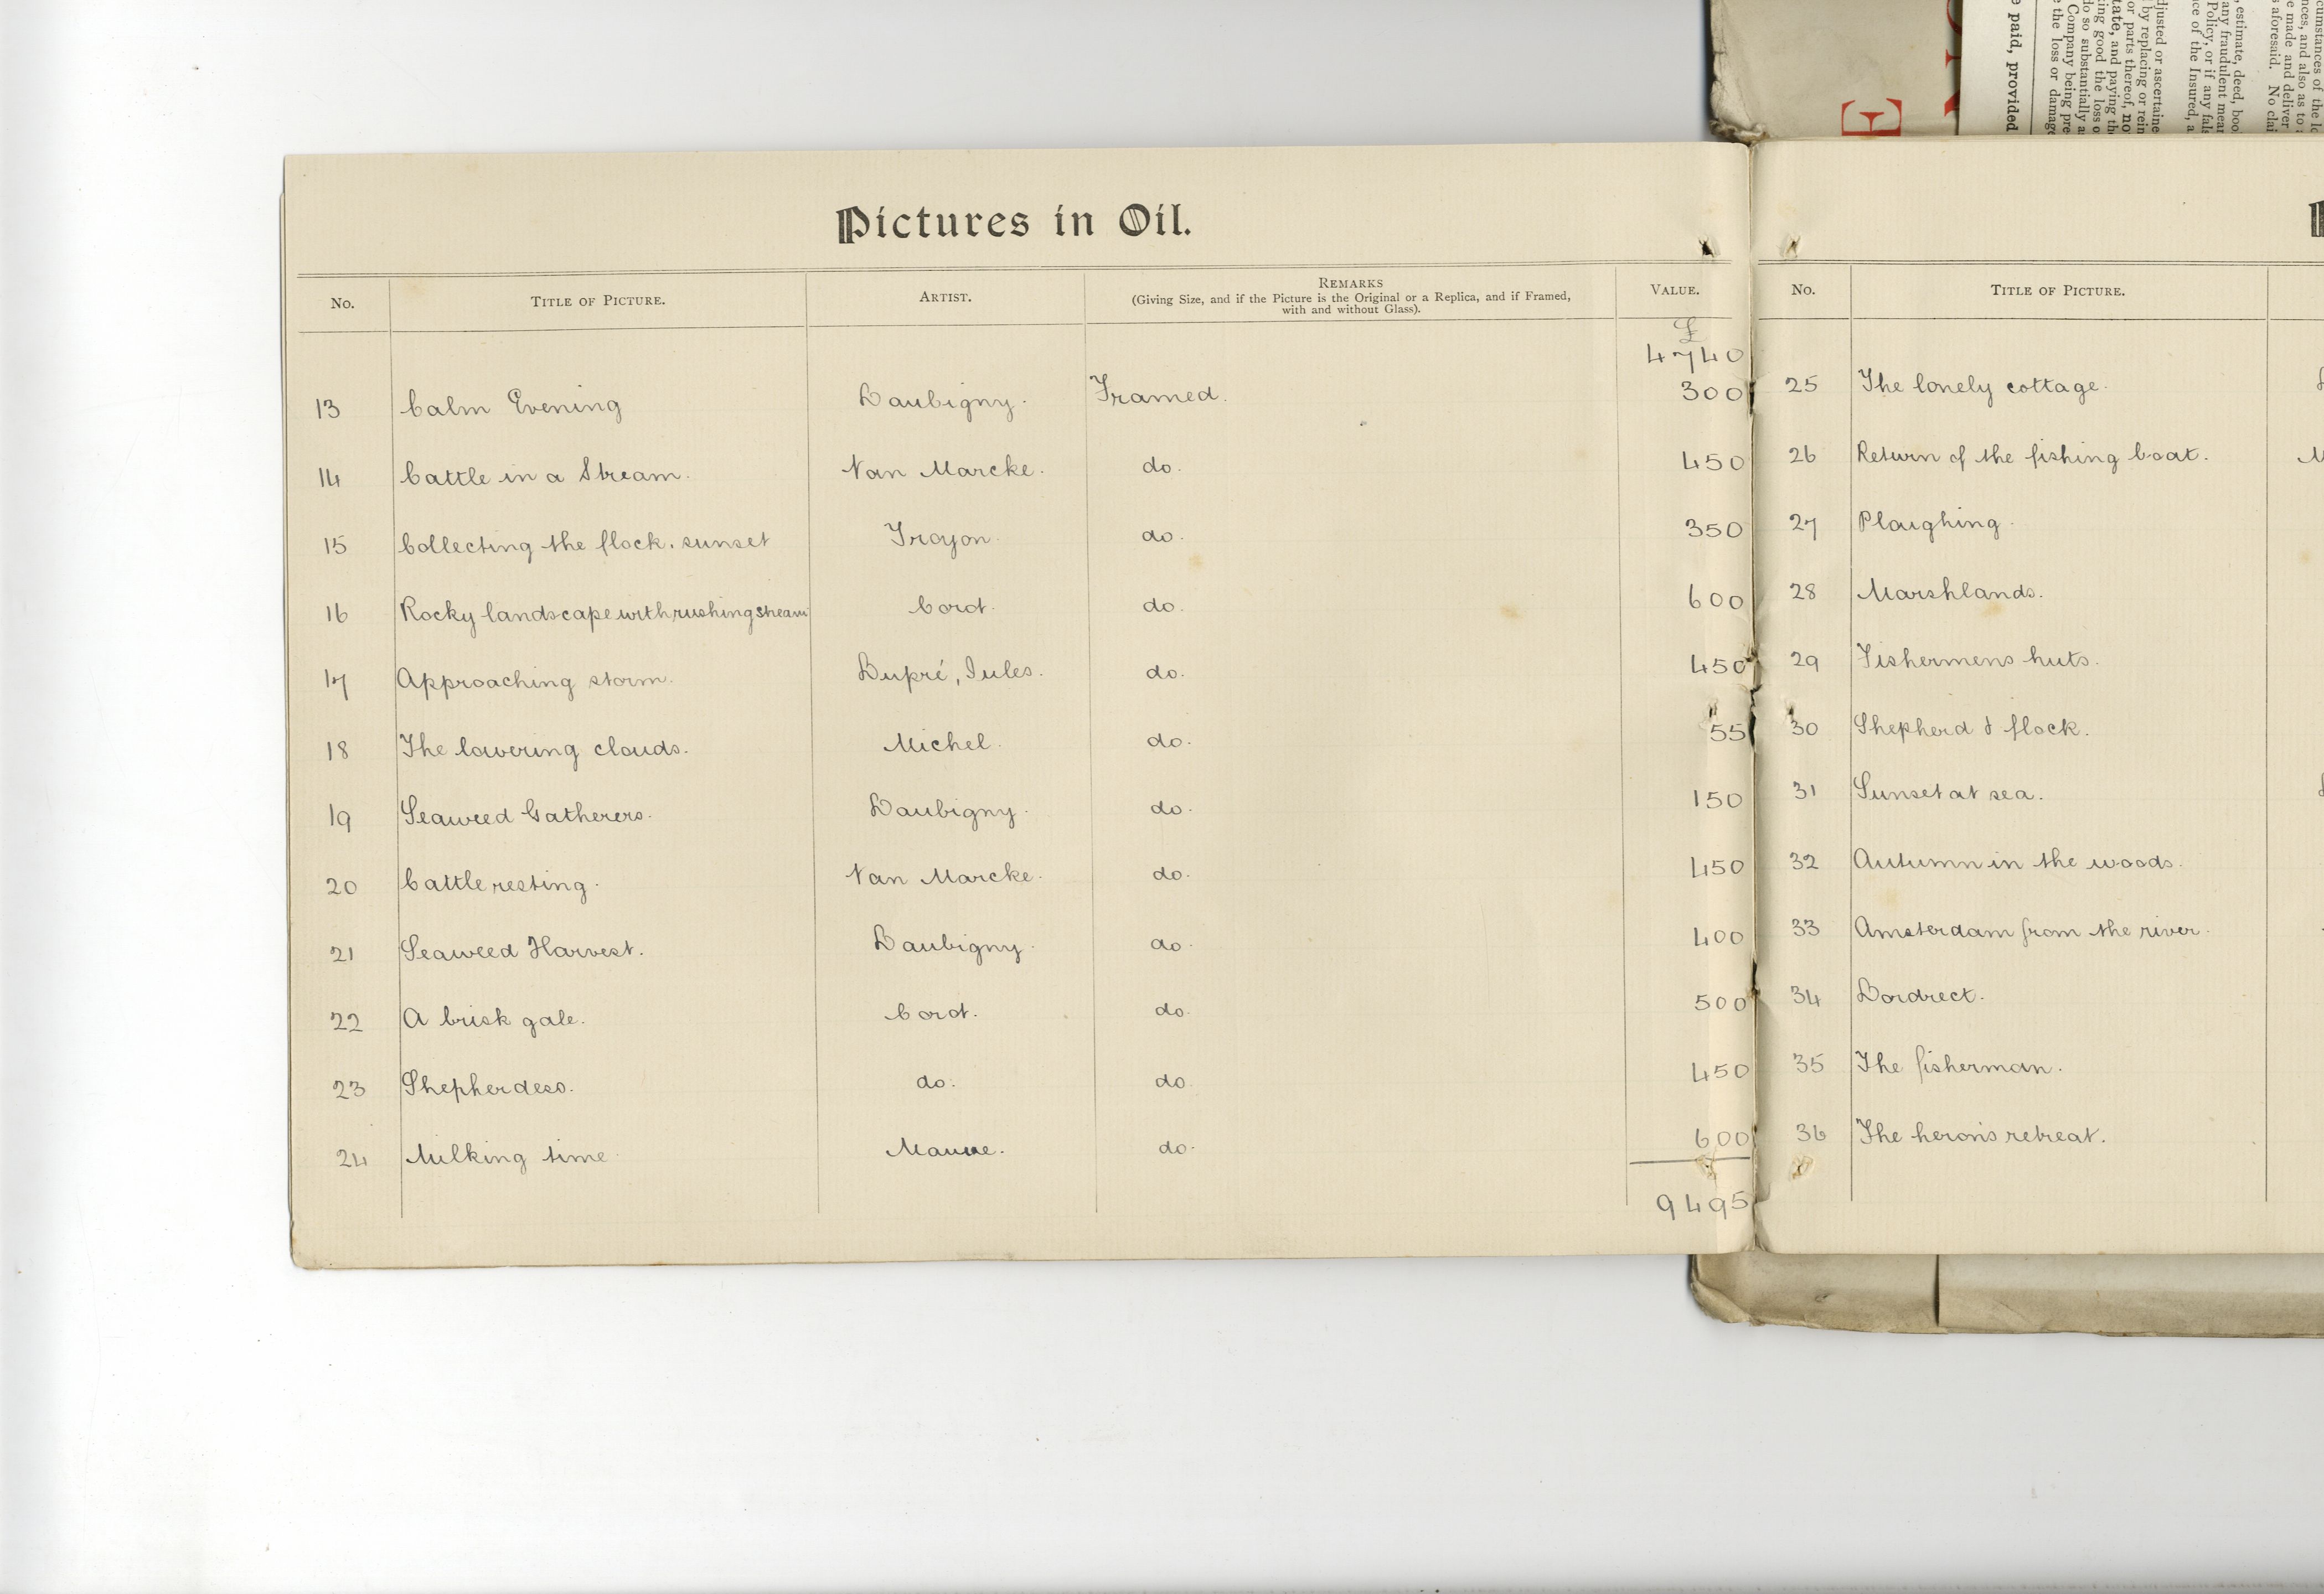 Pictures in Oil.
No. TITLE OF PICTURE. ARTIST. REMARKS VALUE.
(Giving Size, and if the Picture is the Original or a Replica, and if Framed,
with and without Glass).
£
4740
13 Calm Evening Daubigny. Framed. 300
14 Cattle in a Stream. Van Marcke. do. 450
15 Collecting the flock. sunset Troyon. do. 350
16 Rocky landscape with rushing stream Corot. do. 600
17 Approaching storm. Dupré, Jules. do. 450
18 The lowering clouds. Michel. do. 55
19 Seaweed Gatherers. Daubigny. do. 150
20 Cattle resting. Van Marcke. do. 450
21 Seaweed Harvest. Daubigny. do. 400
22 A brisk gale. Corot. do. 500
23 Shepherdess. do. do. 450
24 Milking time. Mauve. do. 600
9495
No. TITLE OF PICTURE.
25 The lonely cottage.
26 Return of the fishing boat.
27 Ploughing.
28 Marshlands.
29 Fishermens huts.
30 Shepherd & flock.
31 Sunset at sea.
32 Autumn in the woods.
33 Amsterdam from the river.
34 Dordrect.
35 The fisherman.
36 The heron's retreat.
E
e paid, provided
the loss or damage
Company being pre
do so substantially a
ing good the loss o
tate, and paying th
or parts thereof, no
by replacing or rein
djusted or ascertaine
ce of the Insured, a
Policy, or if any fals
any fraudulent mean
estimate, deed, boo
s aforesaid. No clai
e made and deliver
nces, and also as to
cumstances of the lo